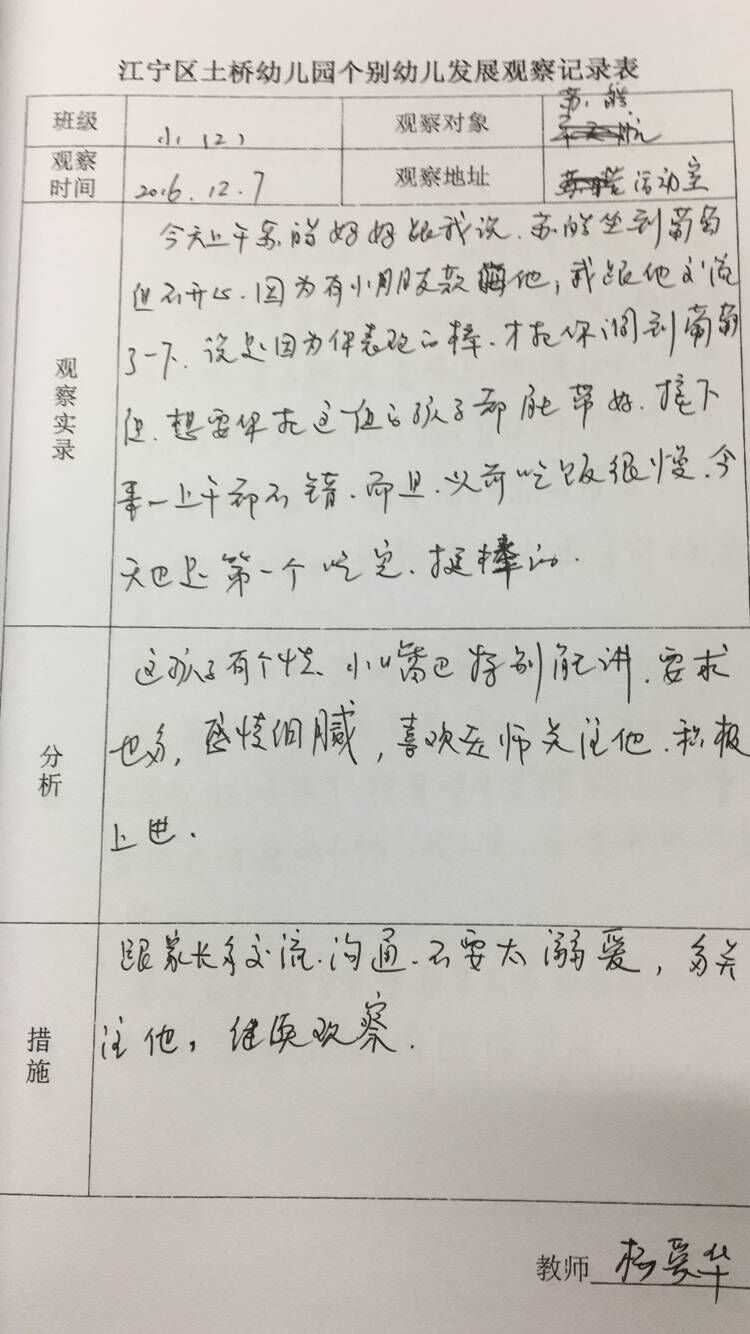 江宁区土桥幼儿园个别幼儿发展观察记录表
班级 小（2） 观察对象 苏皓
观察时间 2016.12.7 观察地址 活动室
观察实录
今天上午苏皓妈妈跟我说.苏皓坐到葡萄
组不开心.因为有小朋友欺他,我跟他交流
了一下.说是因为你表现的棒.才把你调到葡萄
组.想要你把这组的孩子都能带好.接下
来一上午都不错.而且.以前吃饭很慢.今
天也是第一个吃完.挺棒的.
分析
这孩子有个性.小嘴巴特别能讲.要求
也多,感情细腻,喜欢老师关注他.积极
上进.
措施
跟家长多交流.沟通.不要太溺爱,多关
注他,继续观察.
教师 杨爱华